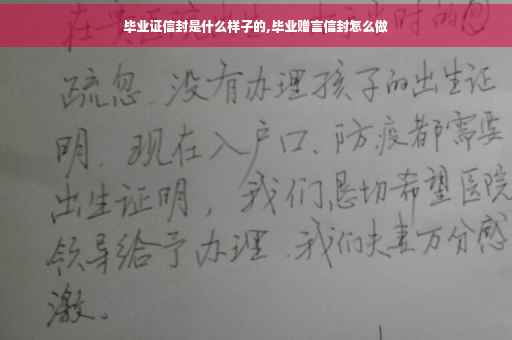 毕业证信封是什么样子的,毕业赠言信封怎么做
疏忽.没有办理孩子的出生证
明.现在入户口、防疫都需要
出生证明，我们恳切希望医院
领导给予办理.我们夫妻万分感
激。